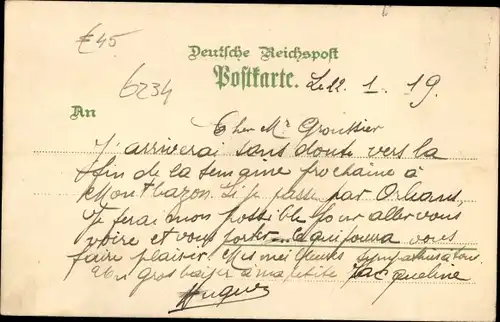 £45
6234
Deutsche Reichspost
Postkarte.
Le 22 1 19.
An
Cher Mr Groussier
J'arriverai sans doute vers la
fin de la semaine prochaine à
Montbazon. Si je passe par Orléans,
je ferai mon possible pour aller vous
voire et vous porter ce qui pourra vous
faire plaisir. Mes meilleures sympathies a tous
Un gros baiser à ma petite Jacqueline
Hugues